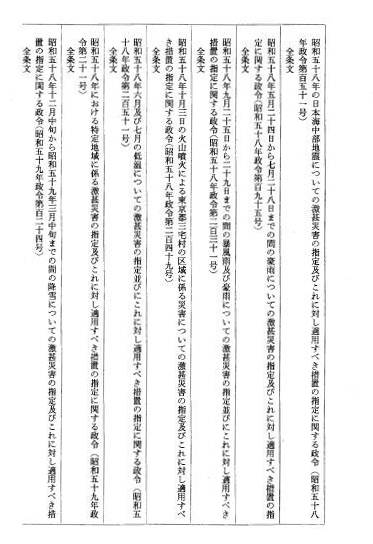 昭和五十八年の日本海中部地震についての激甚災害の指定及びこれに対し適用すべき措置の指定に関する政令（昭和五十八
年政令第百五十一号）
全条文
昭和五十八年五月二十四日から七月二十八日までの間の豪雨についての激甚災害の指定及びこれに対し適用すべき措置の指
定に関する政令（昭和五十八年政令第百九十五号）
全条文
昭和五十八年九月二十五日から二十九日までの間の暴風雨及び豪雨についての激甚災害の指定並びにこれに対し適用すべき
措置の指定に関する政令（昭和五十八年政令第二百三十一号）
全条文
昭和五十八年十月三日の火山噴火による東京都三宅村の区域に係る災害についての激甚災害の指定及びこれに対し適用すべ
き措置の指定に関する政令（昭和五十八年政令第二百四十九号）
全条文
昭和五十八年六月及び七月の低温についての激甚災害の指定並びにこれに対し適用すべき措置の指定に関する政令（昭和五
十八年政令第二百五十一号）
全条文
昭和五十八年における特定地域に係る激甚災害の指定及びこれに対し適用すべき措置の指定に関する政令（昭和五十九年政
令第二十一号）
全条文
昭和五十八年十二月中旬から昭和五十九年三月中旬までの間の降雪についての激甚災害の指定及びこれに対し適用すべき措
置の指定に関する政令（昭和五十九年政令第百二十四号）
全条文